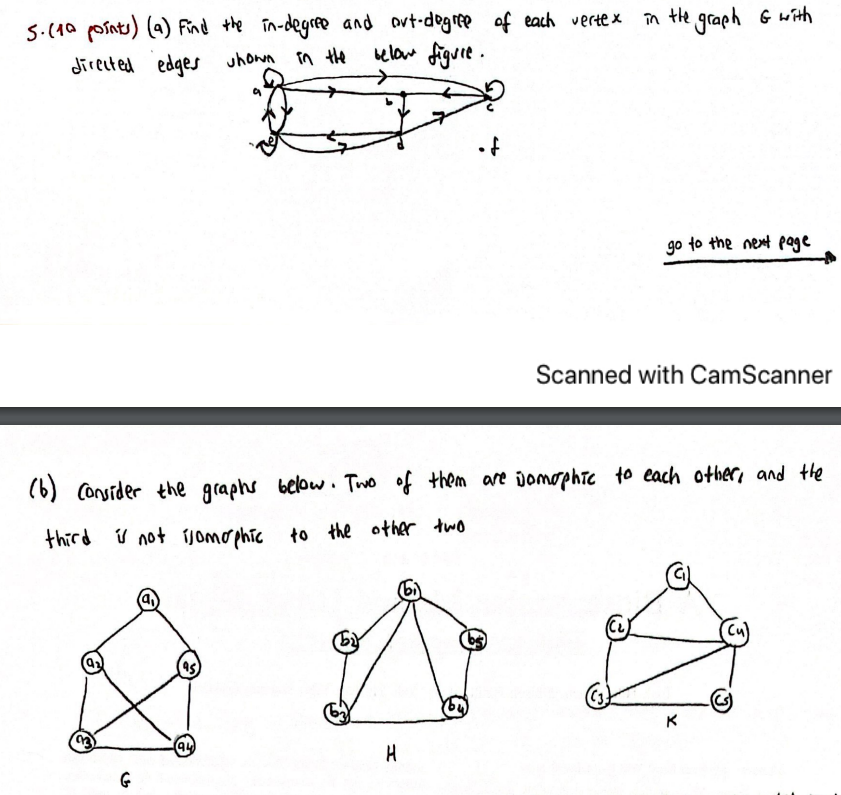 5. (10 points) (a) Find the in-degree and out-degree of each vertex in the graph G with
directed edges shown in the below figure.
a
b
c
e
d
. f
go to the next page
Scanned with CamScanner
(b) Consider the graphs below. Two of them are isomorphic to each other, and the
third is not isomorphic to the other two
a1
a2
a5
a3
a4
G
b1
b2
b5
b3
b4
H
C1
C2
C4
C3
C5
K